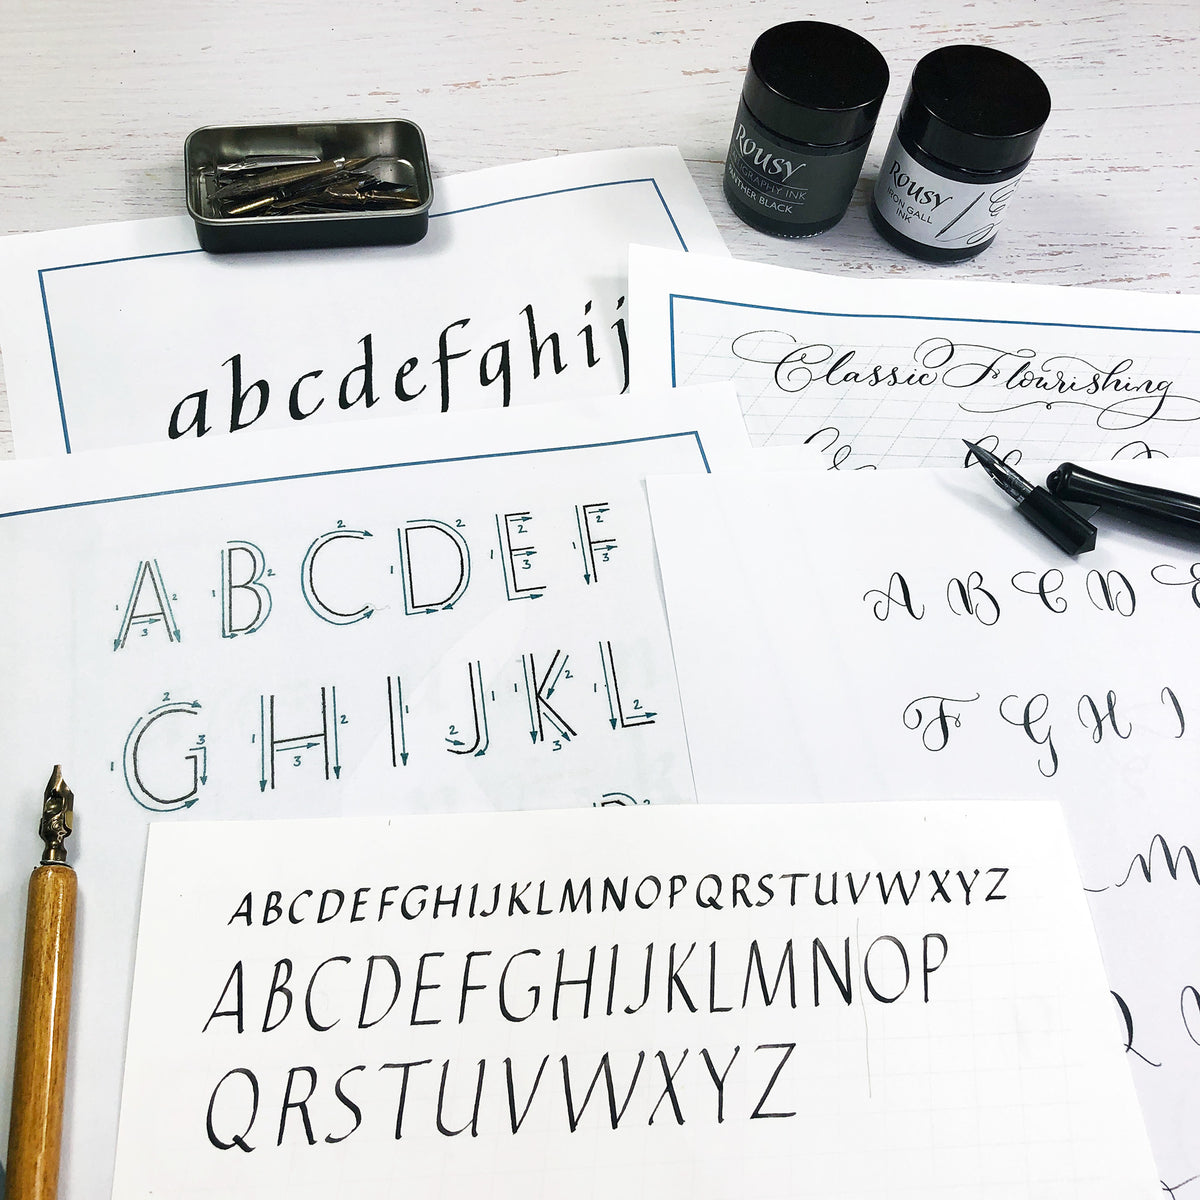 Rousy
CALLIGRAPHY INK
PANTHER BLACK
Rousy
IRON GALL
INK
abcdefghij
Classic Flourishing
A B C D E F
1 2 3 1 2 2 1 2 1 2 3 1 2 3
G H I J K L
1 2 3 1 2 3 1 1 2 1 2 3 1 2
2
A B C D E
F G H I
M
ABCDEFGHIJKLMNOPQRSTUVWXYZ
ABCDEFGHIJKLMNOP
QRSTUVWXYZ